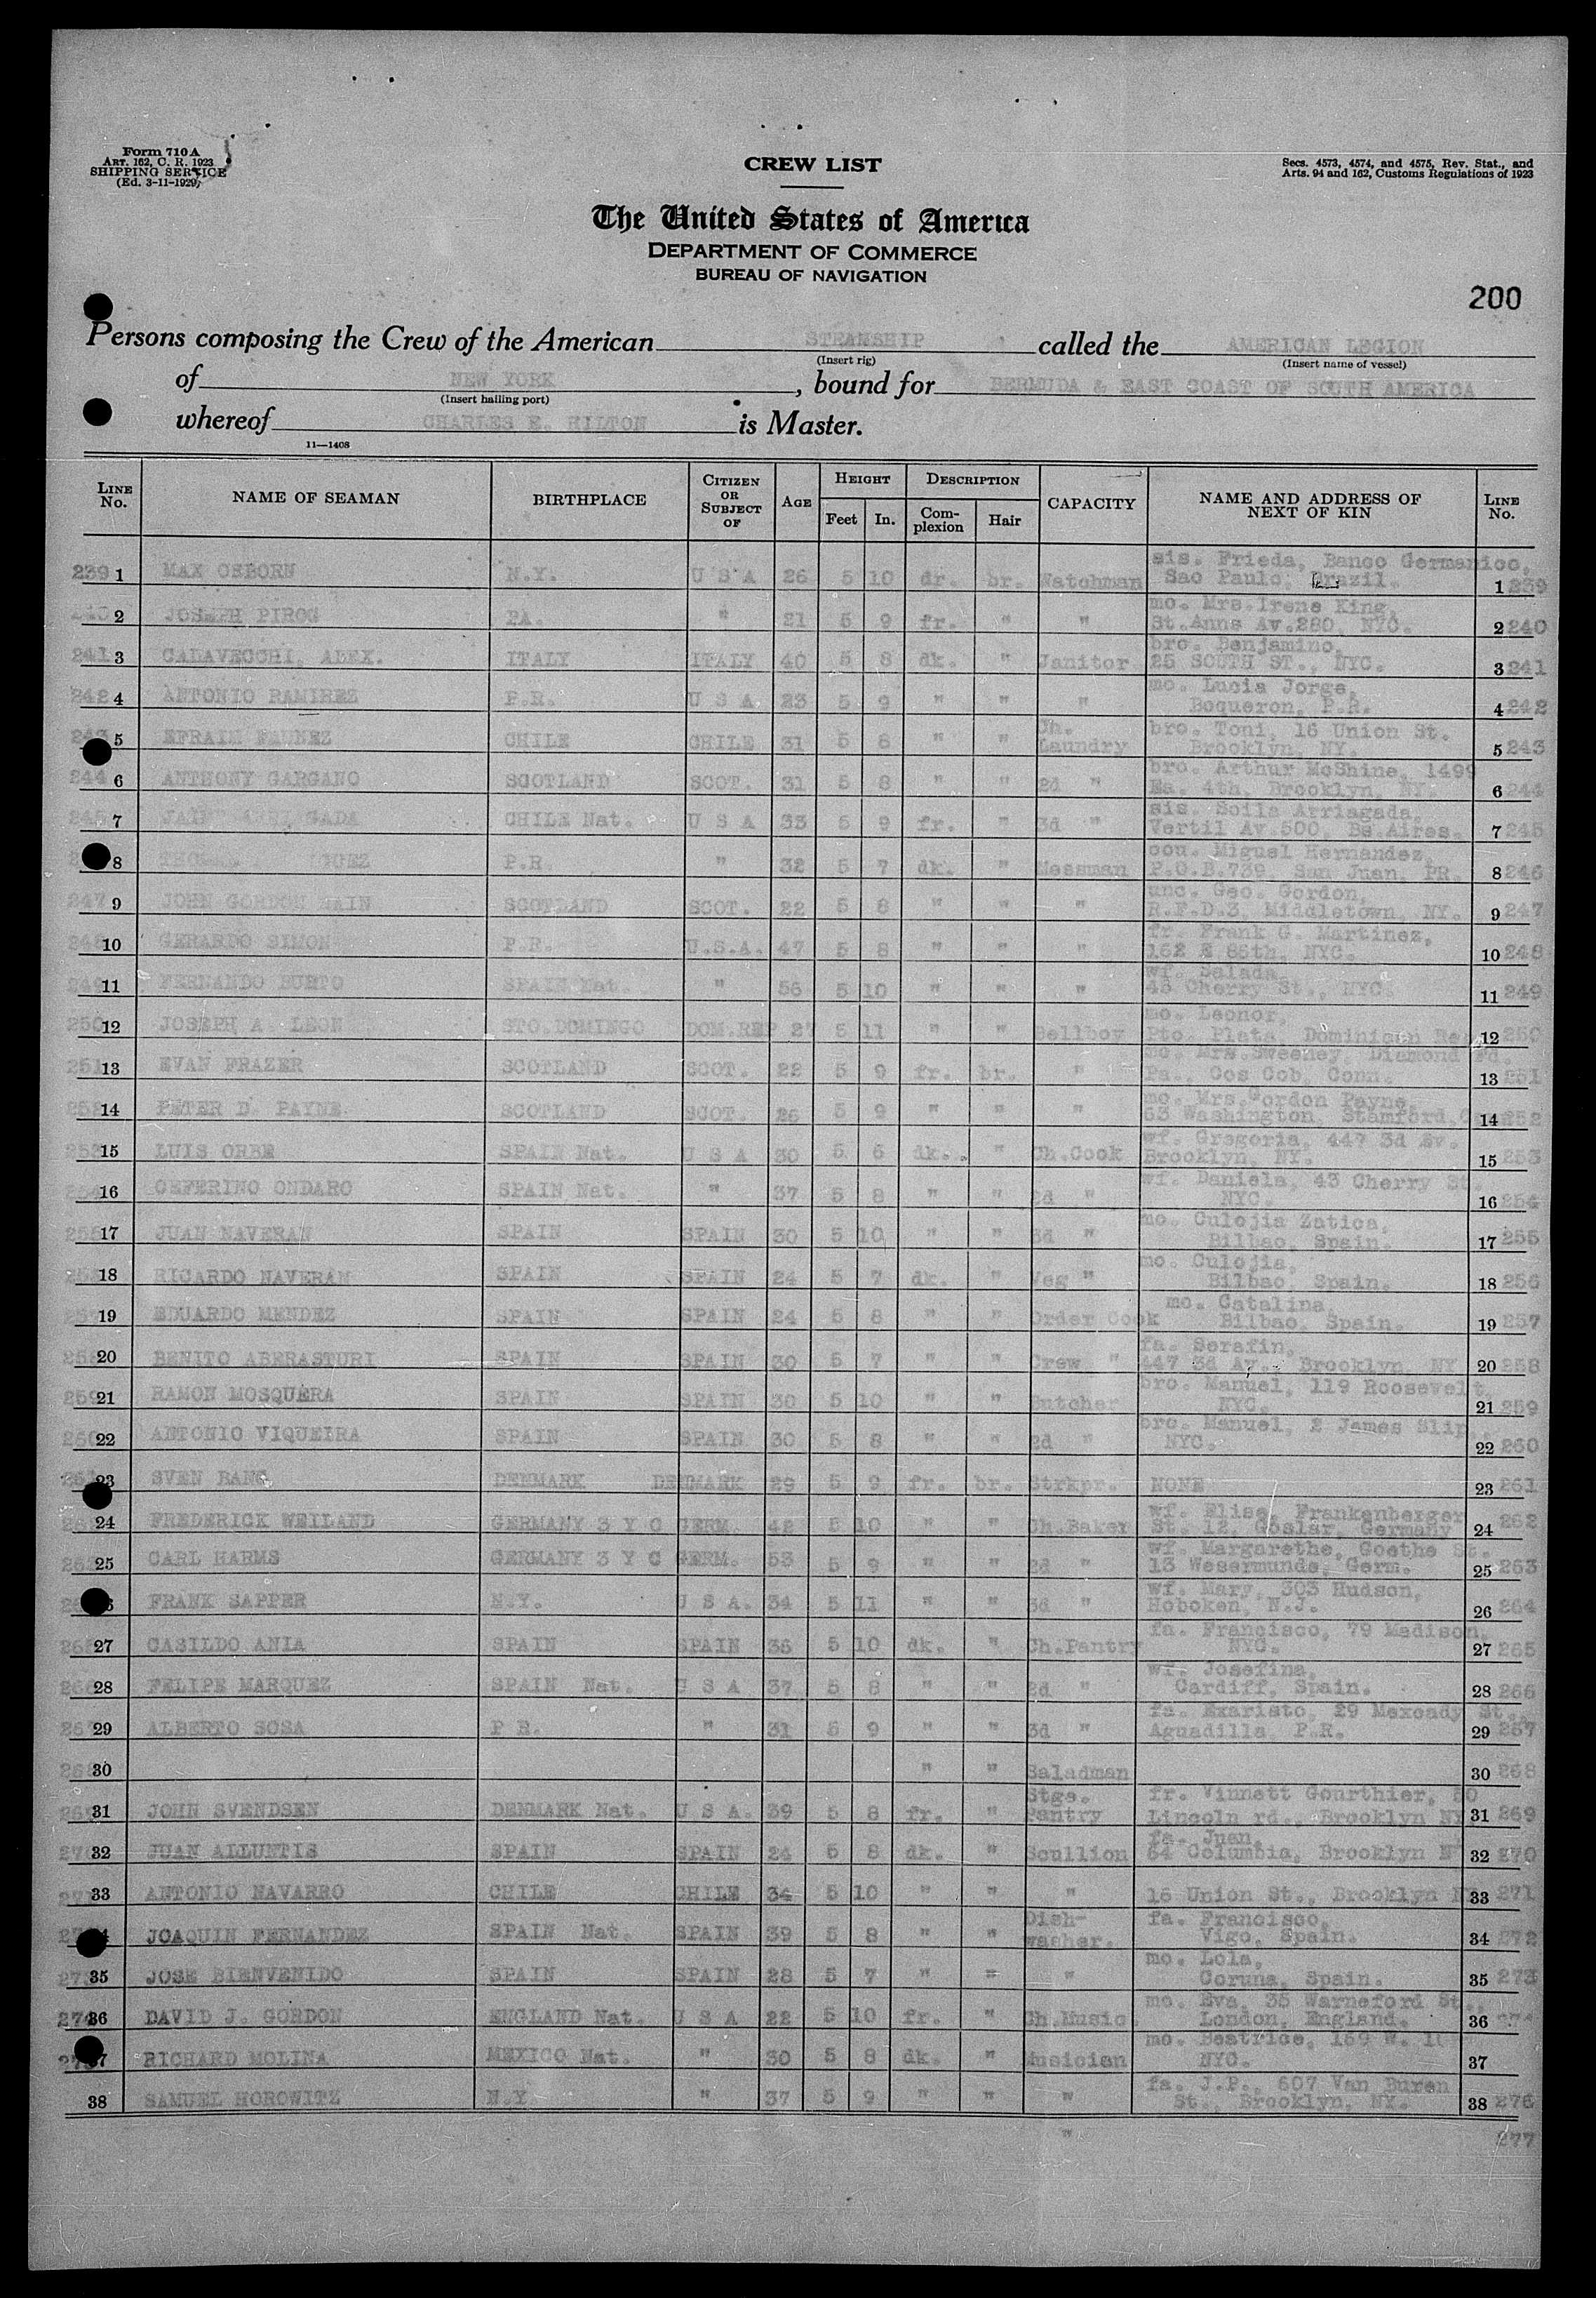 Form 710 A
ART. 162, C. R. 1923
SHIPPING SERVICE
(Ed. 3-11-1929)
CREW LIST
Secs. 4573, 4574, and 4575, Rev. Stat., and
Arts. 94 and 162, Customs Regulations of 1923
The United States of America
DEPARTMENT OF COMMERCE
BUREAU OF NAVIGATION
200
Persons composing the Crew of the American STEAMSHIP called the AMERICAN LEGION
(Insert rig) (Insert name of vessel)
of NEW YORK, bound for BERMUDA & EAST COAST OF SOUTH AMERICA
(Insert hailing port)
whereof CHARLES E. HILTON is Master.
11—1408
LINE No. NAME OF SEAMAN BIRTHPLACE CITIZEN OR SUBJECT OF AGE HEIGHT Feet In. DESCRIPTION Complexion Hair CAPACITY NAME AND ADDRESS OF NEXT OF KIN LINE No.
239 1 MAX OSBORN N.Y. U S A 26 5 10 dr. br. Watchman sis. Frieda, Banco Germanico, Sao Paulo, Brazil. 1 239
2 JOSEPH PIROG PA. " 21 5 9 fr. " " mo. Mrs.Irene King, St.Anns Av.280, NYC. 2 240
241 3 CALAVECCHI, ALEX. ITALY ITALY 40 5 8 dk. " Janitor bro. Benjamino, 25 SOUTH ST., NYC. 3 241
242 4 ANTONIO RAMIREZ P.R. U S A 23 5 9 " " " mo. Lucia Jorge, Boqueron, P.R. 4 242
5 EFRAIM CHILE CHILE 31 5 6 " " Ch. Laundry bro. Toni, 16 Union St. Brooklyn, NY. 5 243
244 6 ANTHONY GARGANO SCOTLAND SCOT. 31 5 8 " " 2d " bro. Arthur McShine, 1499 Ea. 4th, Brooklyn, NY. 6 244
7 CHILE Nat. U S A 33 5 9 fr. " 3d " sis. Soila Arriagada, Vertil Av.500, Bs.Aires. 7 245
8 P.R " 32 5 7 dk. " Messman cou. Miguel Hernandez, P.O.B.739, San Juan, PR. 8 246
247 9 JOHN GORDON MAIN SCOTLAND SCOT. 22 5 8 " " " unc. Geo. Gordon, R.F.D.3, Middletown, NY. 9 247
248 10 GERARDO SIMON P.R. U.S.A. 47 5 8 " " " fr. Frank G. Martinez, 162 E 85th, NYC. 10 248
249 11 FERNANDO BURTO SPAIN Nat. " 56 5 10 " " " wf. Salada, 43 Cherry St., NYC 11 249
250 12 JOSEPH A. LEON STO.DOMINGO DOM.REP 27 5 11 " " Bellboy mo. Leonor, Pto. Plata, Dominican 12 250
251 13 EVAN FRAZER SCOTLAND SCOT. 22 5 9 fr. br. " mo. Mrs.Sweeney, Diamond Pa., Cos Cob, Conn. 13 251
252 14 PETER D. PAYNE SCOTLAND SCOT. 26 5 9 " " " mo. Mrs.Gordon Payne, 63 Washington, Stamford, 14 252
253 15 LUIS ORBE SPAIN Nat. U S A 30 5 6 dk. " Ch.Cook wf. Gregoria, 447 3d Av. Brooklyn, NY. 15 253
254 16 CEFERINO ONDARO SPAIN Nat. " 37 5 8 " " 2d " wf. Daniela, 43 Cherry St. NYC. 16 254
255 17 JUAN NAVERAN SPAIN SPAIN 30 5 10 " " 3d " mo. Culojia Zatica, Bilbao, Spain. 17 255
18 RICARDO NAVERAN SPAIN SPAIN 24 5 7 dk. " Veg " mo. Culojia, Bilbao, Spain. 18 256
19 EDUARDO MENDEZ SPAIN SPAIN 24 5 8 " " Order Cook mo. Catalina, Bilbao, Spain. 19 257
258 20 BENITO ABERASTURI SPAIN SPAIN 30 5 7 " " Crew " fa. Serafin, 447 3d Av., Brooklyn, NY 20 258
259 21 RAMON MOSQUERA SPAIN SPAIN 30 5 10 " " Butcher bro. Manuel, 119 Roosevelt, NYC. 21 259
260 22 ANTONIO VIQUEIRA SPAIN SPAIN 30 5 8 " " 2d " bro. Manuel, 2 James Slip, NYC. 22 260
23 SVEN BANG DENMARK DENMARK 29 5 9 fr. br. Strkpr. NONE 23 261
24 FREDERICK WEILAND GERMANY 3 Y C GERM. 42 5 10 " " Ch.Baker wf. Elise, Frankenberger St. 12, Goslar, Germany 24 262
25 CARL HARMS GERMANY 3 Y C GERM. 53 5 9 " " 2d " wf. Margarethe, Goethe St. 13 Wesermunde, Germ. 25 263
FRANK SAPPER N.Y. U S A. 34 5 11 " " 3d " wf. Mary, 303 Hudson, Hoboken, N.J. 26 264
27 CASILDO ANIA SPAIN SPAIN 36 5 10 dk. " Ch.Pantry fa. Francisco, 79 Madison, NYC. 27 265
28 FELIPE MARQUEZ SPAIN Nat. U S A 37 5 8 " " 2d " wf. Josefina, Cardiff, Spain. 28 266
29 ALBERTO SOSA P R. " 31 5 9 " " 3d " fa. Exaristo, 29 St., Aguadilla, P.R. 29 267
30 " " Saladman 30 268
31 JOHN SVENDSEN DENMARK Nat. U S A. 39 5 8 fr. " Stge. Pantry fr. Vinnett Gourthier, 50 Lincoln rd., Brooklyn NY 31 269
32 JUAN ALLUNTIS SPAIN SPAIN 24 5 8 dk. " Scullion fa. Juan, 64 Columbia, Brooklyn 32 270
33 ANTONIO NAVARRO CHILE CHILE 34 5 10 " " " 16 Union St., Brooklyn 33 271
JOAQUIN FERNANDEZ SPAIN Nat. SPAIN 39 5 8 " " Dish-washer. fa. Francisco, Vigo, Spain. 34 272
35 JOSE BIENVENIDO SPAIN SPAIN 28 5 7 " " " mo. Lola, Coruna, Spain. 35 273
274 36 DAVID J. GORDON ENGLAND Nat. U S A 22 5 10 fr. " Ch.Music. mo. Eva, 35 Warneford St., London, England. 36
RICHARD MOLINA MEXICO Nat. " 30 5 8 dk. " Musician mo. Beatrice, 169 W. NYC. 37
38 SAMUEL HOROWITZ N.Y " 37 5 9 " " " fa. J.P., 607 Van Buren St., Brooklyn, NY. 38 276
" 277